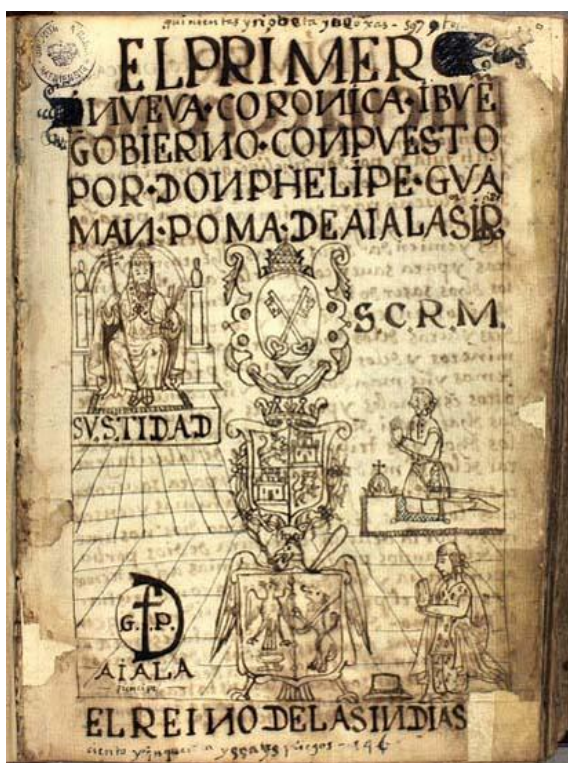 quinientas y nobeta y ciete ojas - 597 ojas
EL PRIMER
NVEVA·CORONICA·IBVE
GOBIERNO·CONPVESTO
POR·DON PHELIPE·GVA
MAN·POMA·DE AIALA S͞IR
S.C.R.M.
SV S.TIDAD
G..P.
D
AIALA
principe
EL REINO DE LAS INDIAS
ciento y
pliegos - 146